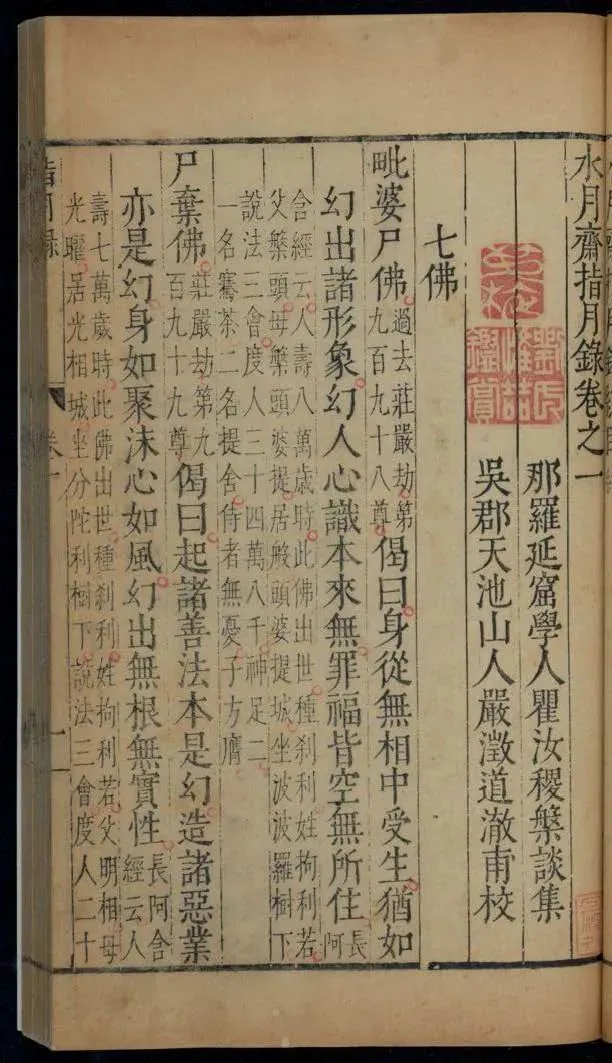 水月齋指月錄卷之一
那羅延窟學人瞿汝稷槃談集
吳郡天池山人嚴澂道澈甫校
七佛
毗婆尸佛過去莊嚴劫第九百九十八尊偈曰身從無相中受生猶如
幻出諸形象幻人心識本來無罪福皆空無所住長阿
含經云人壽八萬歲時此佛出世種刹利姓拘利若
父槃頭母槃頭婆提居般頭婆提城坐波波羅樹下
說法三會度人三十四萬八千神足二
一名騫茶二名提舍侍者無憂子方膺
尸棄佛莊嚴劫第九百九十九尊偈曰起諸善法本是幻造諸惡業
亦是幻身如聚沫心如風幻出無根無實性長阿含經云人
壽七萬歲時此佛出世種刹利姓拘利若父明相母
光曜居光相城坐分陀利樹下說法三會度人二十
指月錄 卷一 一